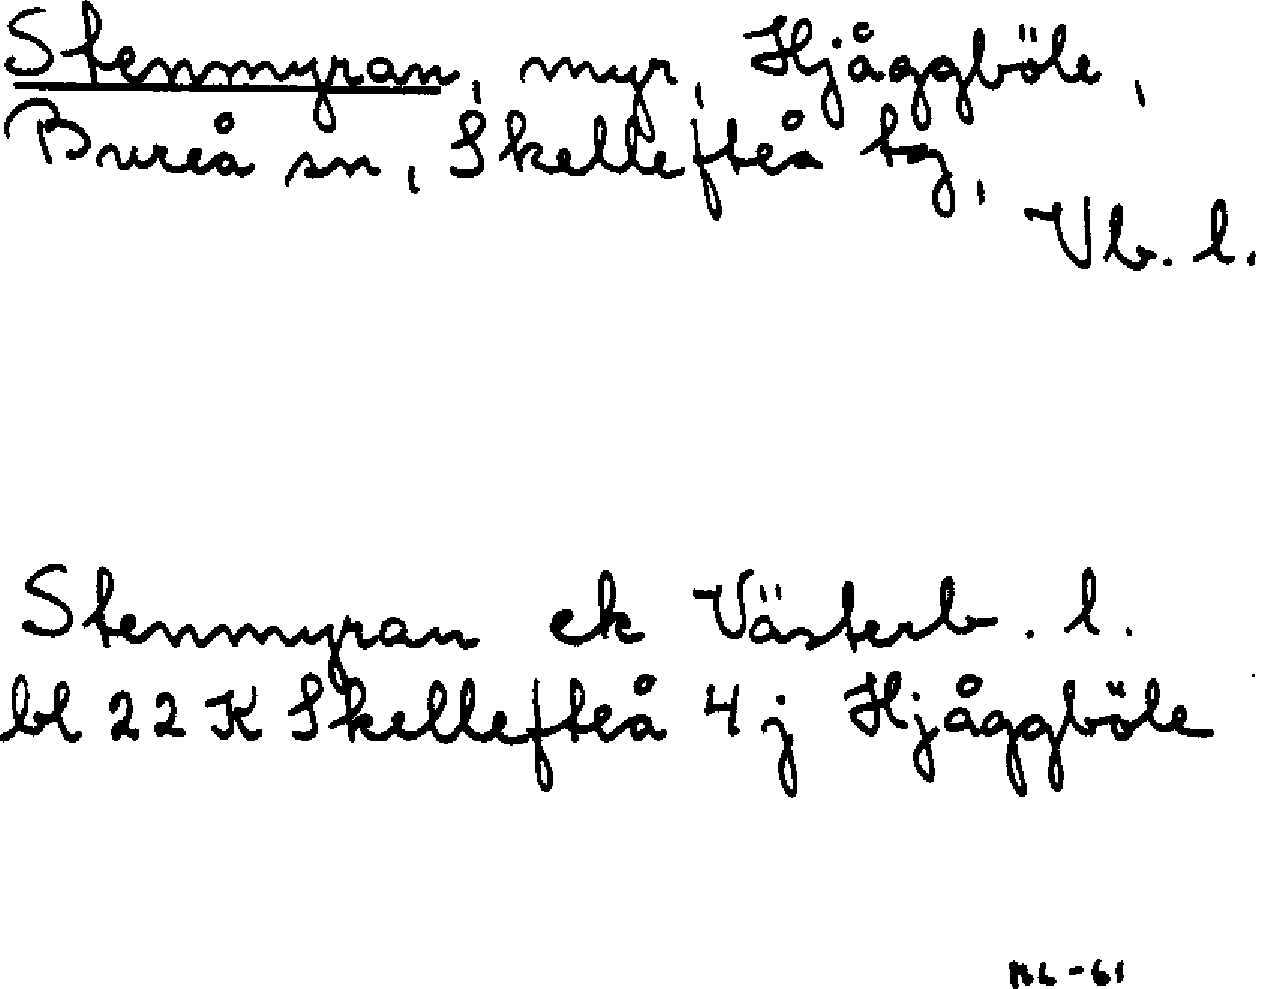 Stenmyran, myr, Hjåggböle,
Bureå sn, Skellefteå tg,
Vb. l.
Stenmyran ek Västerb. l.
bl 22 K Skellefteå 4 j Hjåggböle
NL-61